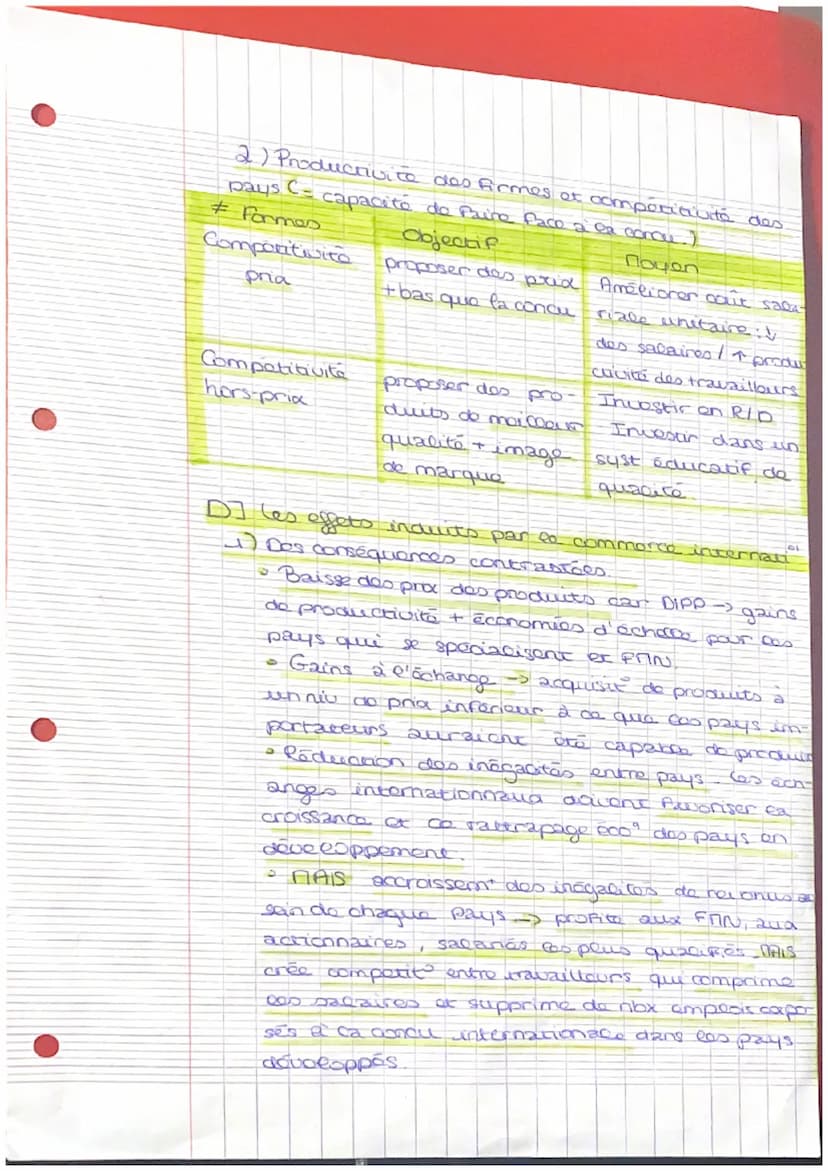 2) Productivité des firmes et compétitivité des
pays (= capacité de faire face à la concu.)
≠ Formes
Objectif
Moyen
Compétitivité
prix
proposer des prix
+ bas que la concu
Améliorer coût sala-
riale unitaire : ↓
des salaires / ↑ produ
ctivité des travailleurs
Compétitivité
hors-prix
proposer des pro-
duits de meilleur
qualité + image
de marque
Investir en R/D
Investir dans un
syst éducatif de
qualité.
D] Les effets induits par le commerce internati°al
1) Des conséquences contrastées.
• Baisse des prix des produits car DIPP → gains
de productivité + économies d'échelle pour les
pays qui se spécialisent et FMN.
• Gains à l'échange → acquisit° de produits à
un niv de prix inférieur à ce que les pays im-
portateurs auraient été capable de produire
• Réduction des inégalités entre pays. Les éch-
anges internationnaux doivent favoriser la
croissance et le rattrapage éco° des pays en
développement.
• MAIS accroissemt des inégalités de revenus au
sein de chaque pays → profite aux FMN, aux
actionnaires, salariés les plus qualifiés. MAIS
crée compétit° entre travailleurs qui comprime
les salaires et supprime de nbx emplois expo-
sés à la concu internationale dans les pays
développés.